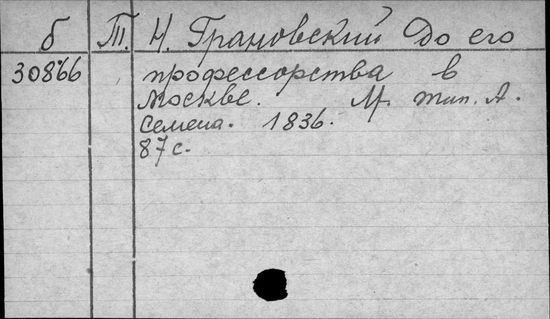 б Т. Н. Грановский до его
30866 профессорства в
Москве. М. тип. А.
Семена. 1836.
87 с.